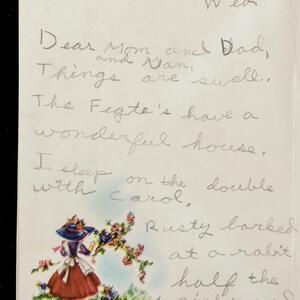 Wed
Dear Mom and Dad,
and Nan,
Things are swell.
The Fegte's have a
wonderful house.
I sleep on the double
with Carol.
Rusty barked
at a rabit
half the